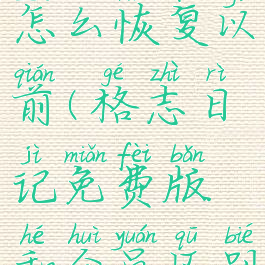 怎么恢复以
qián gé zhì rì
前(格志日
jì miǎn fèi bǎn
记免费版
hé huì yuán qū bié
和会员区别